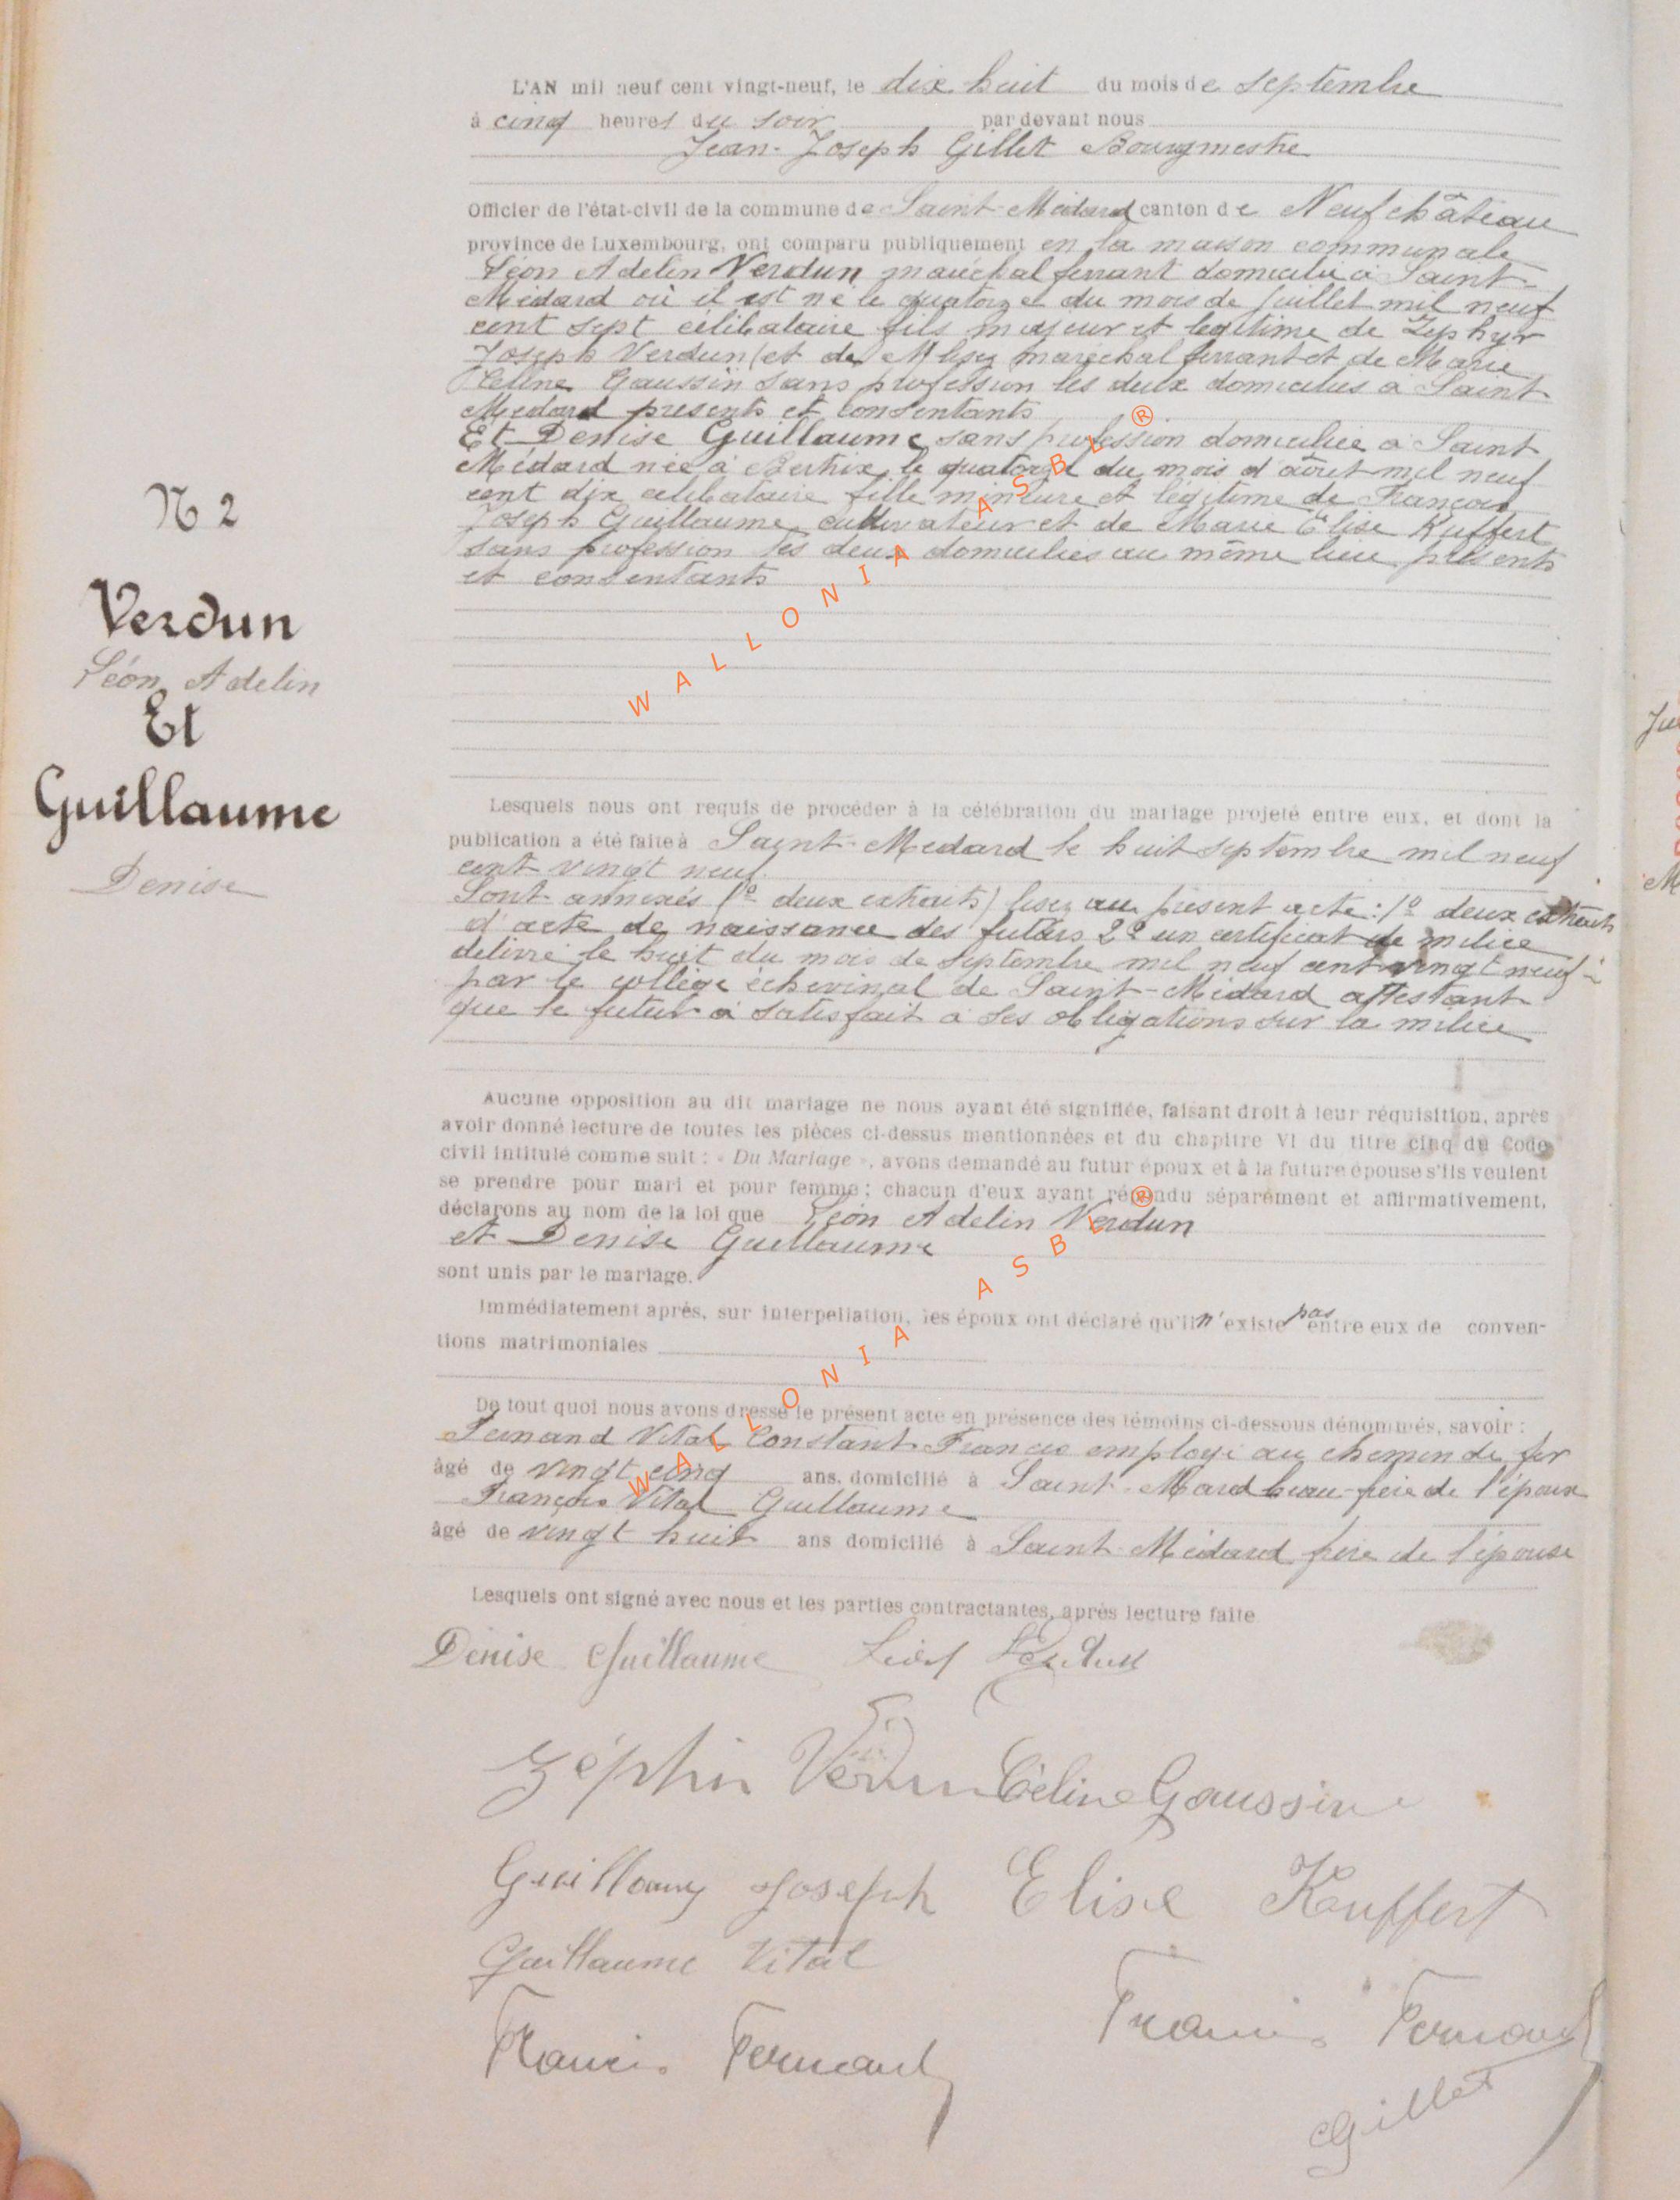 L'AN mil neuf cent vingt-neuf, le dix huit du mois de septembre
à cinq heures du soir par devant nous
Jean-Joseph Gillet Bourgmestre
Officier de l'état-civil de la commune de Saint-Médard canton de Neufchâteau
province de Luxembourg, ont comparu publiquement en la maison communale
Léon Adelin Verdun maréchal ferrant domicilié à Saint-
Médard où il est né le quatorze du mois de juillet mil neuf
cent sept célibataire fils majeur et legitime de Zéphyr
Joseph Verdun (et de) lisez maréchal ferrant et de Marie
Céline Gaussin sans profession les deux domiciliés à Saint
Médard présents et consentants
Et Denise Guillaume sans profession domiciliée à Saint
Médard née à Bertrix le quatorze du mois d'août mil neuf
cent dix célibataire fille mineure et légitime de François
Joseph Guillaume cultivateur et de Marie Elise Kuffert
sans profession les deux domiciliés au même lieu présents
et consentants
N 2
Verdun
Léon Adelin
Et
Guillaume
Denise
Lesquels nous ont requis de procéder à la célébration du mariage projeté entre eux, et dont la
publication a été faite à Saint-Medard le huit septembre mil neuf
cent vingt neuf.
Sont annexés (1º deux extraits) lisez au présent acte : 1º deux extraits
d'acte de naissance des futurs 2º un certificat de milice
délivré le huit du mois de septembre mil neuf cent vingt neuf
par le collège échevinal de Saint-Médard attestant
que le futur a satisfait à ses obligations sur la milice
Aucune opposition au dit mariage ne nous ayant été signifiée, faisant droit à leur réquisition, après
avoir donné lecture de toutes les pièces ci-dessus mentionnées et du chapitre VI du titre cinq du Code
civil intitulé comme suit : « Du Mariage », avons demandé au futur époux et à la future épouse s'ils veulent
se prendre pour mari et pour femme ; chacun d'eux ayant répondu séparément et affirmativement,
déclarons au nom de la loi que Léon Adelin Verdun
et Denise Guillaume
sont unis par le mariage.
Immédiatement après, sur interpellation, les époux ont déclaré qu'il n'existe pas entre eux de conven-
tions matrimoniales
De tout quoi nous avons dressé le présent acte en présence des témoins ci-dessous dénommés, savoir :
Fernand Vital Constant Francis employé au chemin de fer
âgé de vingt cinq ans, domicilié à Saint-Mard beau-frère de l'époux
François Vital Guillaume
âgé de vingt huit ans domicilié à Saint-Médard frère de l'épouse
Lesquels ont signé avec nous et les parties contractantes, après lecture faite
Denise Guillaume Léon Verdun
Zéphir Verdun Céline Gaussin
Guillaume Joseph Elise Kuffert
Guillaume Vital
Francis Fernand Francis Fernand
Gillet
WALLONIA ASBL ®
WALLONIA ASBL ®